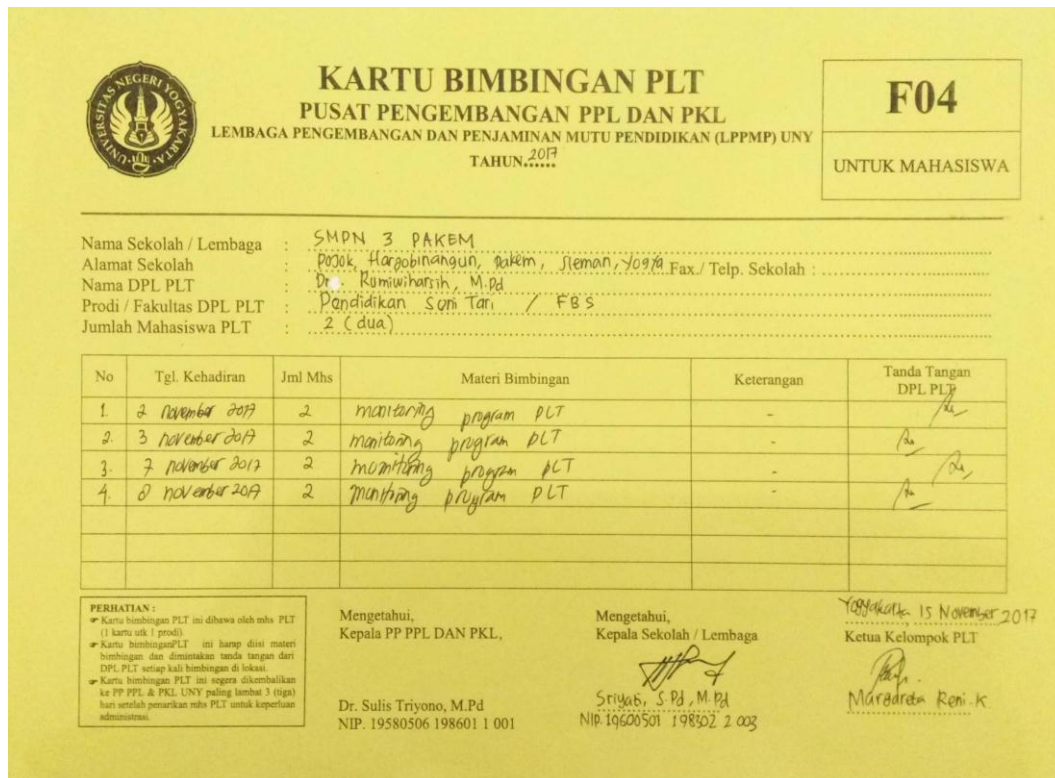 UNIVERSITAS NEGERI YOGYAKARTA
KARTU BIMBINGAN PLT
PUSAT PENGEMBANGAN PPL DAN PKL
LEMBAGA PENGEMBANGAN DAN PENJAMINAN MUTU PENDIDIKAN (LPPMP) UNY
TAHUN 2017
F04
UNTUK MAHASISWA
Nama Sekolah / Lembaga : SMPN 3 PAKEM
Alamat Sekolah : Pojok, Hargobinangun, Pakem, Sleman, Yogya Fax./ Telp. Sekolah :
Nama DPL PLT : Dr. Rumiwiharsih, M.Pd
Prodi / Fakultas DPL PLT : Pendidikan Seni Tari / FBS
Jumlah Mahasiswa PLT : 2 (dua)
No Tgl. Kehadiran Jml Mhs Materi Bimbingan Keterangan Tanda Tangan DPL PLT
1. 2 november 2017 2 monitoring program PLT -
2. 3 november 2017 2 monitoring program PLT -
3. 7 november 2017 2 monitoring program PLT -
4. 8 november 2017 2 monitoring program PLT -
PERHATIAN :
☞ Kartu bimbingan PLT ini dibawa oleh mhs PLT
(1 kartu utk 1 prodi).
☞ Kartu bimbinganPLT ini harap diisi materi
bimbingan dan dimintakan tanda tangan dari
DPL PLT setiap kali bimbingan di lokasi.
☞ Kartu bimbingan PLT ini segera dikembalikan
ke PP PPL & PKL UNY paling lambat 3 (tiga)
hari setelah penarikan mhs PLT untuk keperluan
administrasi.
Mengetahui,
Kepala PP PPL DAN PKL,
Dr. Sulis Triyono, M.Pd
NIP. 19580506 198601 1 001
Mengetahui,
Kepala Sekolah / Lembaga
Sriyati, S.Pd, M.Pd
NIP. 19600501 198302 2 003
Yogyakarta 15 November 2017
Ketua Kelompok PLT
Margareta Reni.K